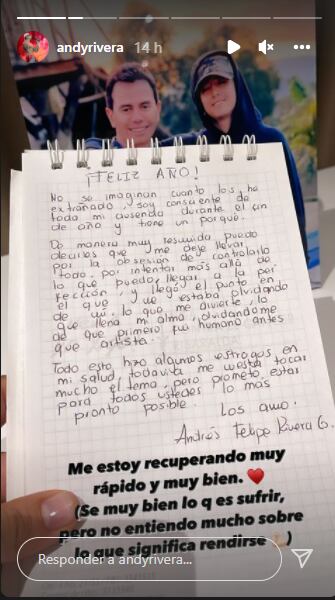 andyrivera 14 h
¡FELIZ AÑO!
No se imaginan cuanto los he
extrañado, soy consciente de
toda mi ausencia durante el fin
de año y tiene un porqué.
De manera muy resumida puedo
decirles que me deje llevar
por la obsesión de controlarlo
todo, por intentar más allá de
lo que puedo, llegar a la per
fección, y llegó el punto en
el que me estaba olvidando
de mi, lo que me divierte, lo
que llena mi alma, olvidandome
de que primero fui humano antes
que artista.
Todo esto hizo algunos estragos en
mi salud, todavía me cuesta tocar
mucho el tema, pero prometo estar
para todos ustedes lo más
pronto posible.
Los amo.
Andrés Felipe Rivera G.
Me estoy recuperando muy
rápido y muy bien. ❤️
(Se muy bien lo q es sufrir,
pero no entiendo mucho sobre
lo que significa rendirse )
Responder a andyrivera...